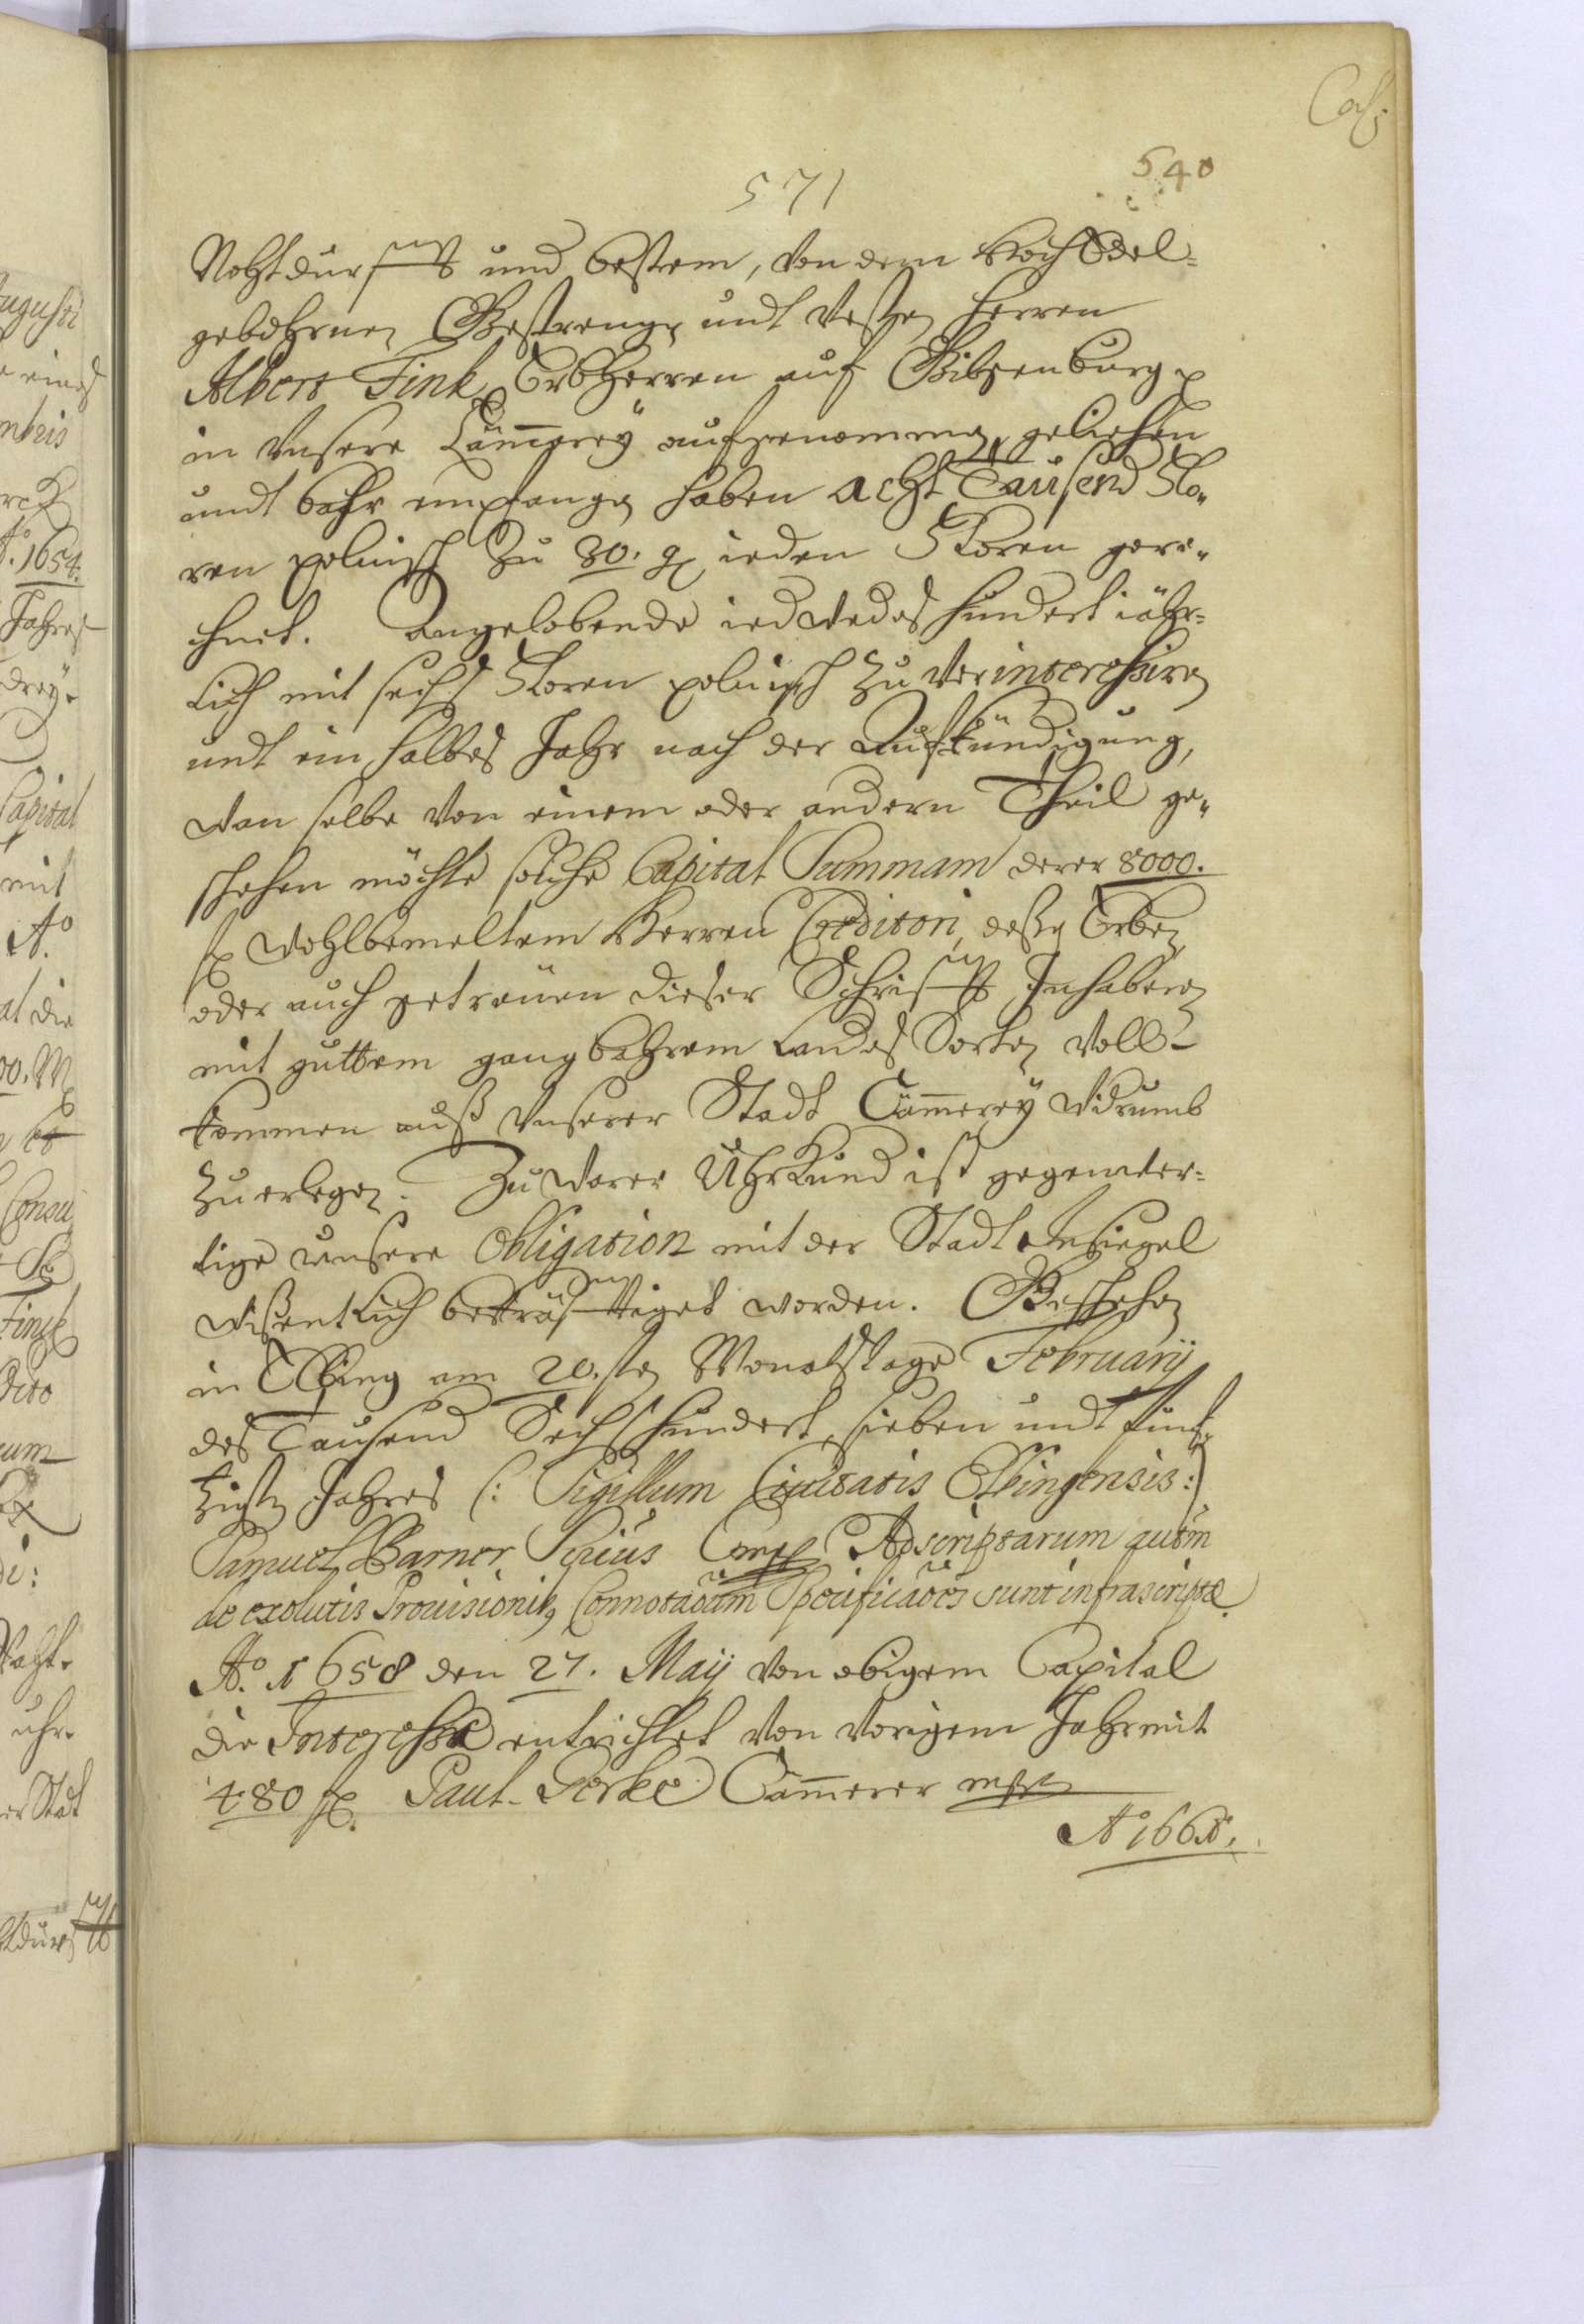 571
540
Nohtdurfft und bestem, von dem HochEdel-
gebohrnen Gestrengen undt Vesten Herren
Albert Fink Erbherren auf Gilsenburg p
in Unsere Cämmerey aufgenommen, geliehen
undt bahr empfangen haben acht Tausend Flo-
ren polnisch zu 30. g ieden Floren gere-
chnet. Angelobende iedwedes hundert iähr-
lich mit sechs Floren polnisch zu Verinteressiren
undt ein halbes Jahr nach der Aufkündigung,
wan selbe von einem oder andern Theil ge-
schehen möchte solche Capital Summam derer 8000.
fl Wohlbemeltem Herren Creditori, deßen Erben
oder auch getreüen dieser Schrifft Inhabern
mit guttem gangbahrem Landes Sorten Voll-
kommen auß Unserer Stadt Cämmerey widrumb
zu erlegen. Zu warer Uhrkund ist gegenwer-
tige Unsere Obligation mit der Stadt Insiegel
wißentlich bekräfftiget worden. Geschehen
in Elbing am 20.sten Monatstage February
des Tausend Sechshundert, sieben und funf-
zigsten Jahres (: Sigillum Civitatis Elbingensis:)
Samuel Barner Scrius Adscriptarum autm
de exolutis Provisionib9 Connotaoum Specificaoes sunt infrascriptae.
Ao. 1658 den 27. Maij von obigem Capital
die Interesse entrichtet von vorigem Jahr mit
480 fl. Paul Gerke Cämmerer mpp